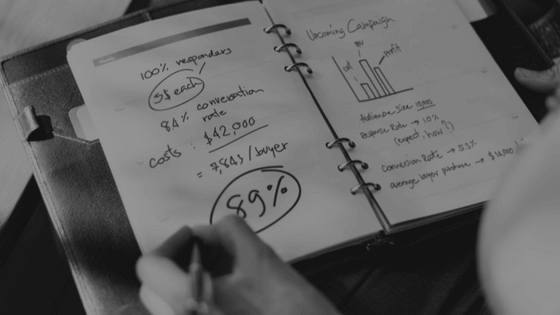 100% responders
5$ each
84% conversation
rate
Costs: $42,000
= 7,84$ / buyer
89%
Upcoming Campaign
profit
Audience size 10,000
Response Rate → 10%
(expect. how?)
Conversion Rate → 53%
average buyer purchase →